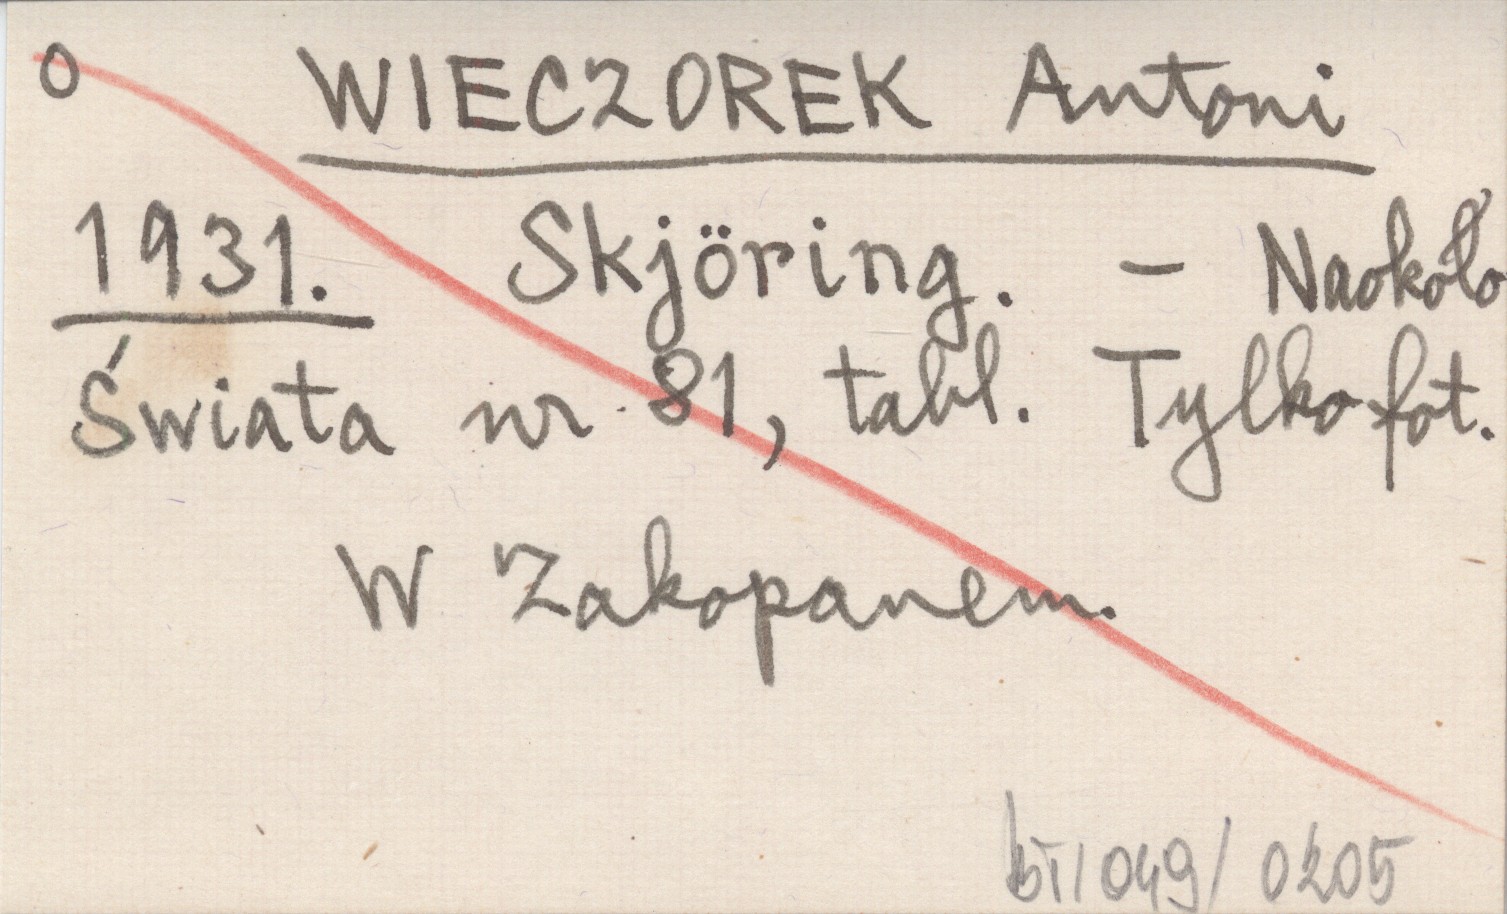 o WIECZOREK Antoni
1931. Skjöring. – Naokoło
Świata nr 81, tabl. Tylko fot.
W Zakopanem.
bT/049/0205